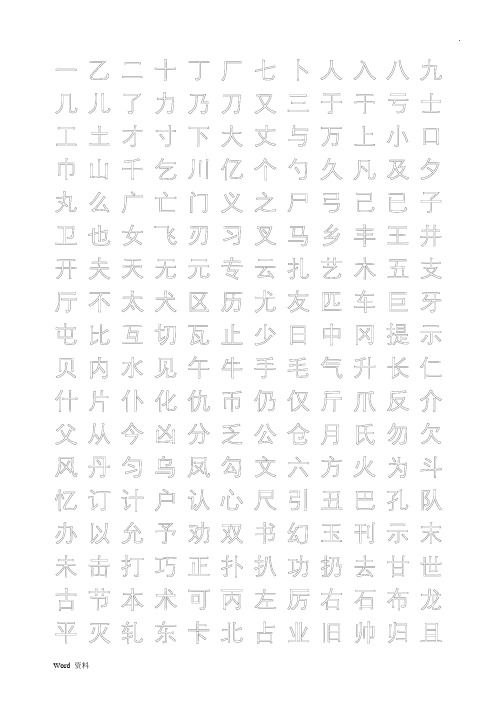 一 乙 二 十 丁 厂 七 卜 人 入 八 九
几 儿 了 力 乃 刀 又 三 于 干 亏 士
工 土 才 寸 下 大 丈 与 万 上 小 口
巾 山 千 乞 川 亿 个 勺 久 凡 及 夕
丸 么 广 亡 门 义 之 尸 弓 己 已 子
卫 也 女 飞 刃 习 叉 马 乡 丰 王 井
开 夫 天 无 元 专 云 扎 艺 木 五 支
厅 不 太 犬 区 历 尤 友 匹 车 巨 牙
屯 比 互 切 瓦 止 少 日 中 冈 提 示
贝 内 水 见 午 牛 手 毛 气 升 长 仁
什 片 仆 化 仇 币 仍 仅 斤 爪 反 介
父 从 今 凶 分 乏 公 仓 月 氏 勿 欠
风 丹 匀 乌 凤 勾 文 六 方 火 为 斗
忆 订 计 户 认 心 尺 引 丑 巴 孔 队
办 以 允 予 劝 双 书 幻 玉 刊 示 末
未 击 打 巧 正 扑 扒 功 扔 去 甘 世
古 节 本 术 可 丙 左 厉 右 石 布 龙
平 灭 轧 东 卡 北 占 业 旧 帅 归 且
Word 资料